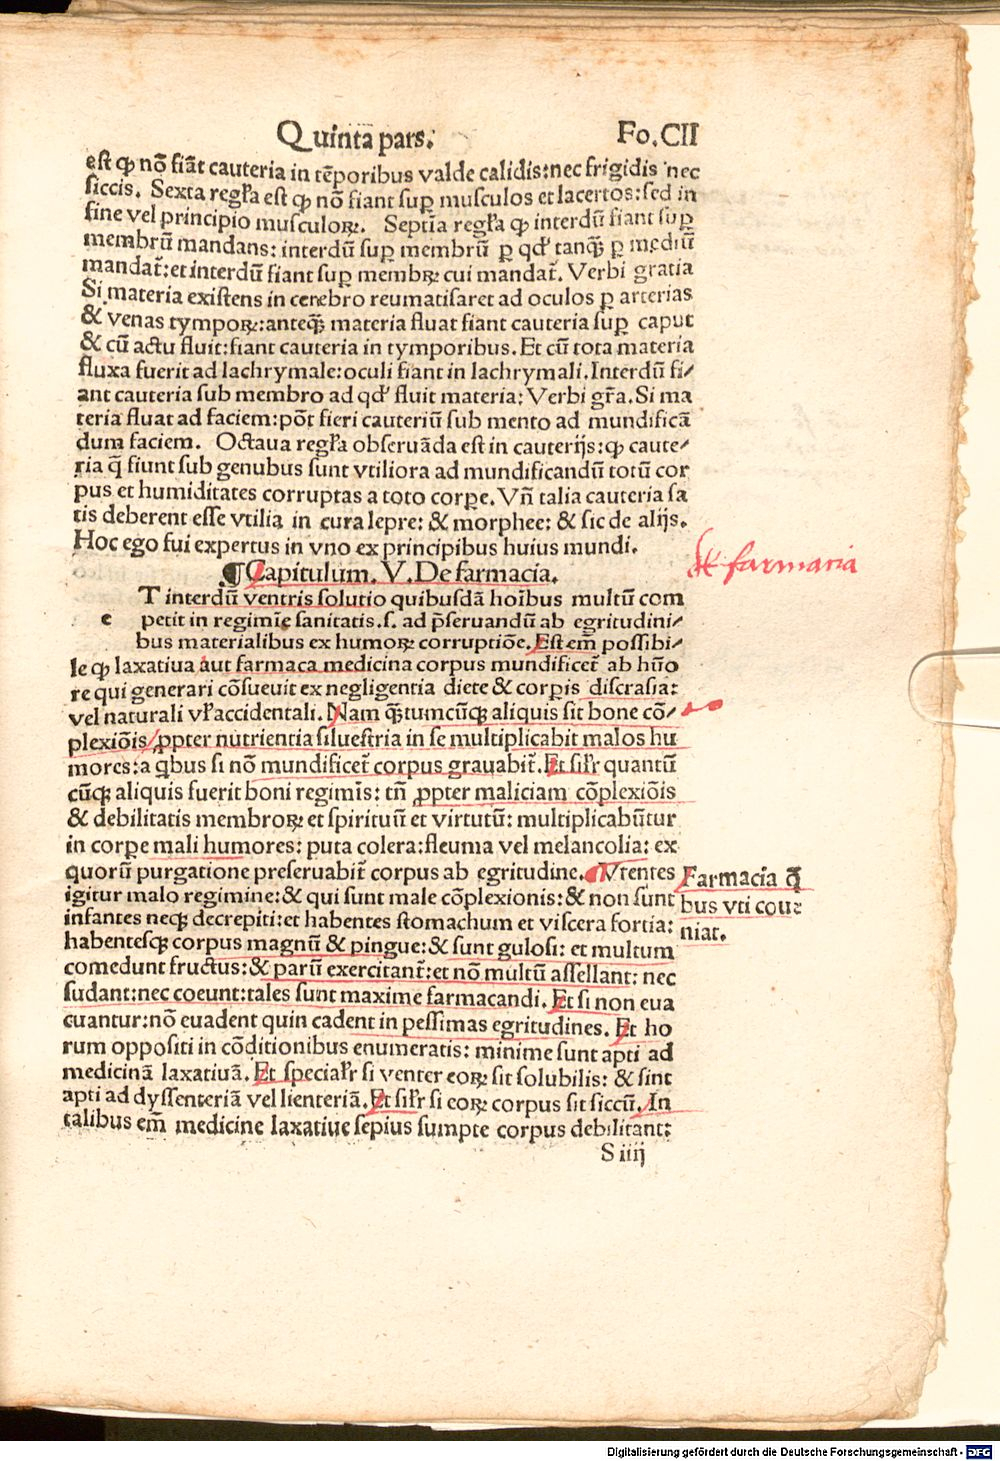 Quinta pars. Fo.CII
est ꝙ nō fiãt cauteria in tẽporibus valde calidis:nec frigidis nec
siccis. Sexta regl'a est ꝙ nō fiant suꝑ musculos et lacertos:sed in
fine vel principio musculoꝝ. Septĩa regl'a ꝙ interdũ fiant suꝑ
membrũ mandans: interdũ suꝑ membrũ ꝑ qd' tanq̃ ꝑ mediũ
mandat̃:et interdũ fiant suꝑ membꝝ cui mandat̃. Verbi gratia
Si materia existens in cerebro reumatisaret ad oculos ꝑ arterias
& venas tympoꝝ:anteq̃ materia fluat fiant cauteria suꝑ caput
& cũ actu fluit:fiant cauteria in tymporibus. Et cũ tota materia
fluxa fuerit ad lachrymale:oculi fiant in lachrymali. Interdũ fi/
ant cauteria sub membro ad qd' fluit materia: Verbi gr̃a. Si ma
teria fluat ad faciem:põt fieri cauteriũ sub mento ad mundificã
dum faciem. Octaua regl'a obseruãda est in cauterijs:ꝙ caute/
ria q̃ fiunt sub genubus sunt vtiliora ad mundificandũ totũ cor
pus et humiditates corruptas a toto corꝑe. Vñ talia cauteria sa
tis deberent esse vtilia in cura lepre: & morphee: & sic de alijs.
Hoc ego fui expertus in vno ex principibus huius mundi.
¶ Capitulum. V. De farmacia.
farmaria
e T interdũ ventris solutio quibusdã hoĩbus multũ com
petit in regimĩe sanitatis.s. ad p̃seruandũ ab egritudini/
bus materialibus ex humoꝝ corruptiõe. Est em̃ possibi/
le ꝙ laxatiua aut farmaca medicina corpus mundificet̃ ab hũo
re qui generari cõsueuit ex negligentia diete & corꝑis discrasia:
vel naturali vl'accidentali. Nam q̃tumcũqꝫ aliquis sit bone cõ/
plexiõis/ ꝓpter nutrientia siluestria in se multiplicabit malos hu
mores:a q̃bus si nõ mundificet̃ corpus grauabit̃. Et sil'r quantũ
cũqꝫ aliquis fuerit boni regimĩs: tñ ꝓpter maliciam cõplexiõis
& debilitatis membroꝝ et spirituũ et virtutũ: multiplicabũtur
in corꝑe mali humores: puta colera:fleuma vel melancolia: ex
quorũ purgatione preseruabit̃ corpus ab egritudine. Vtentes
igitur malo regimine:& qui sunt male cõplexionis:& non sunt
infantes neqꝫ decrepiti:et habentes stomachum et viscera fortia:
habentesqꝫ corpus magnũ & pingue:& sunt gulosi: et multum
comedunt fructus:& parũ exercitant̃:et nõ multũ assellant: nec
sudant:nec coeunt:tales sunt maxime farmacandi. Et si non eua
cuantur:nõ euadent quin cadent in pessimas egritudines. Et ho
rum oppositi in cõditionibus enumeratis: minime sunt apti ad
medicinã laxatiuã. Et special'r si venter eoꝝ sit solubilis: & sint
apti ad dyssenteriã vel lienteriã. Et sil'r si eoꝝ corpus sit siccũ. In
talibus em̃ medicine laxatiue sepius sumpte corpus debilitant:
Farmacia q̃
bus vti cõue
niat.
S iiij
Digitalisierung gefördert durch die Deutsche Forschungsgemeinschaft - DFG